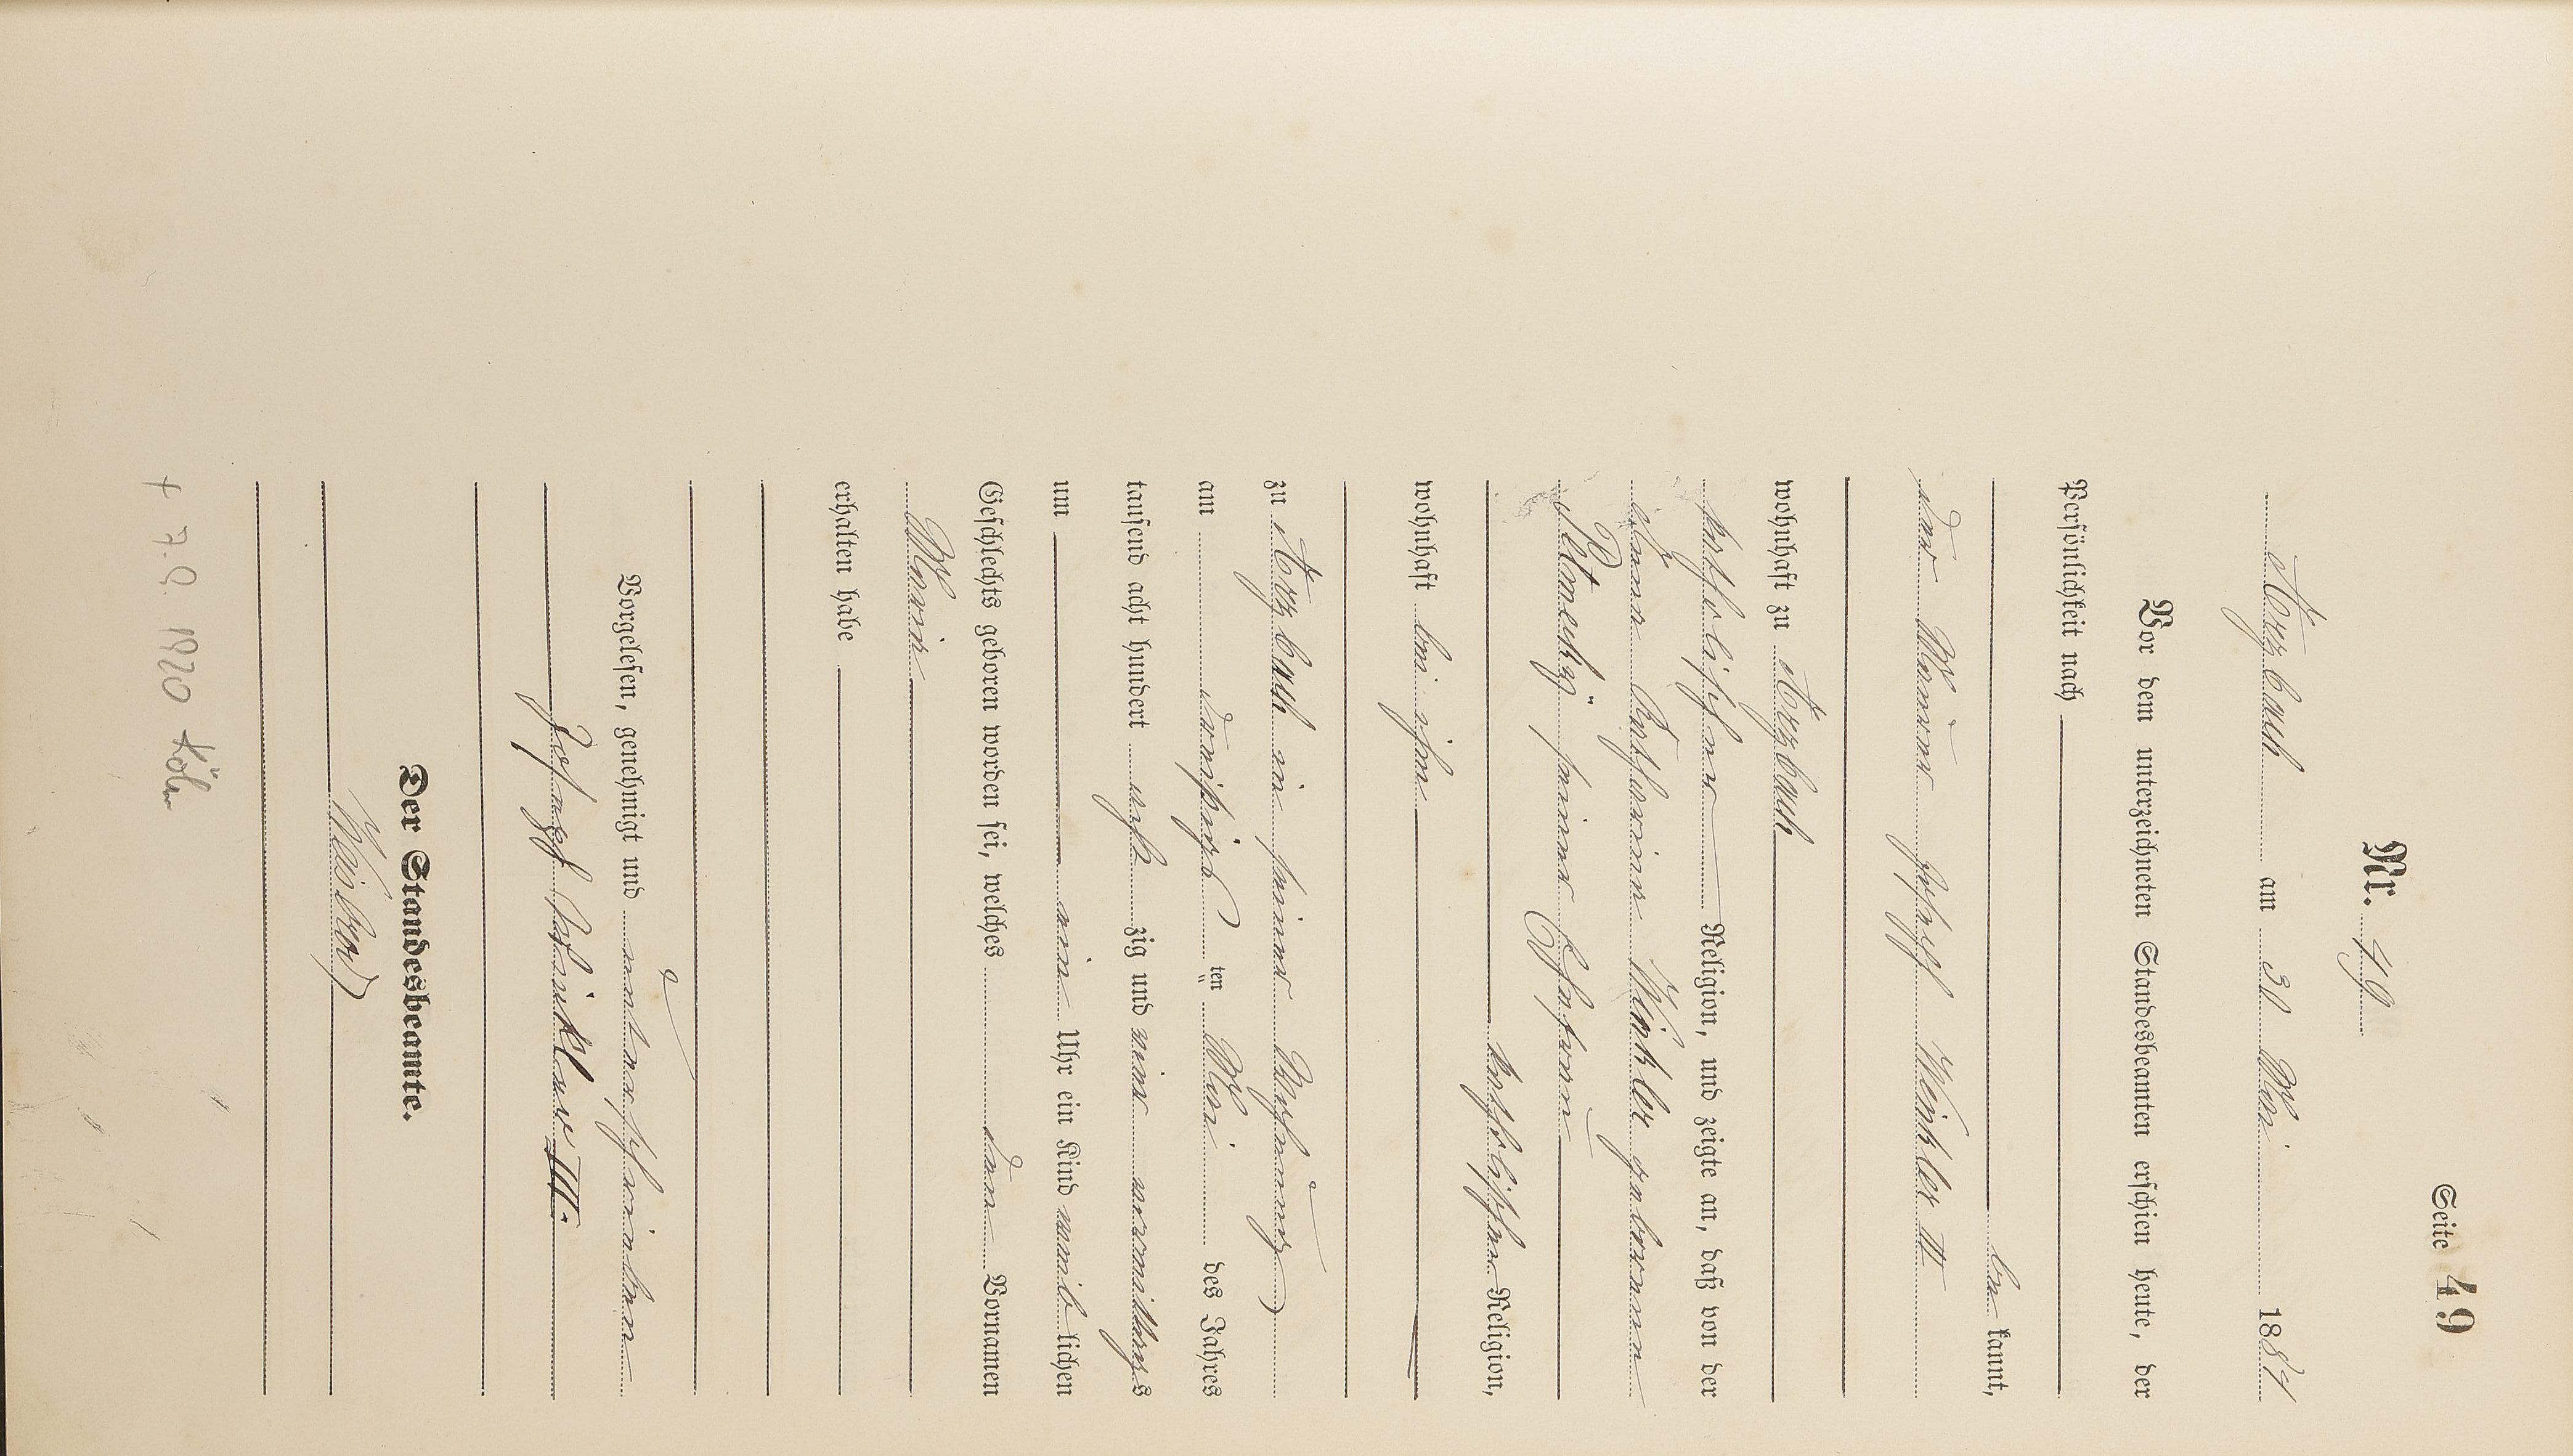 Seite 49
Nr. 49
Arzbach am 30 Mai 1884
Vor dem unterzeichneten Standesbeamten erschien heute, der
Persönlichkeit nach
be kannt,
der Maurer Joseph Winkler II
wohnhaft zu Arzbach
katholischer Religion, und zeigte an, daß von der
Winkler geborenen
seiner Ehefrau
katholischer Religion,
wohnhaft bei ihm
zu Arzbach in seiner Wohnung
am dreißigs ten Mai des Jahres
tausend acht hundert acht zig und vier vormittags
um ein Uhr ein Kind weib lichen
Geschlechts geboren worden sei, welches den Vornamen
Maria
erhalten habe
Vorgelesen, genehmigt und unterschrieben
Joseph Winkler III.
Der Standesbeamte.
+ 7.9. 1920 Köln